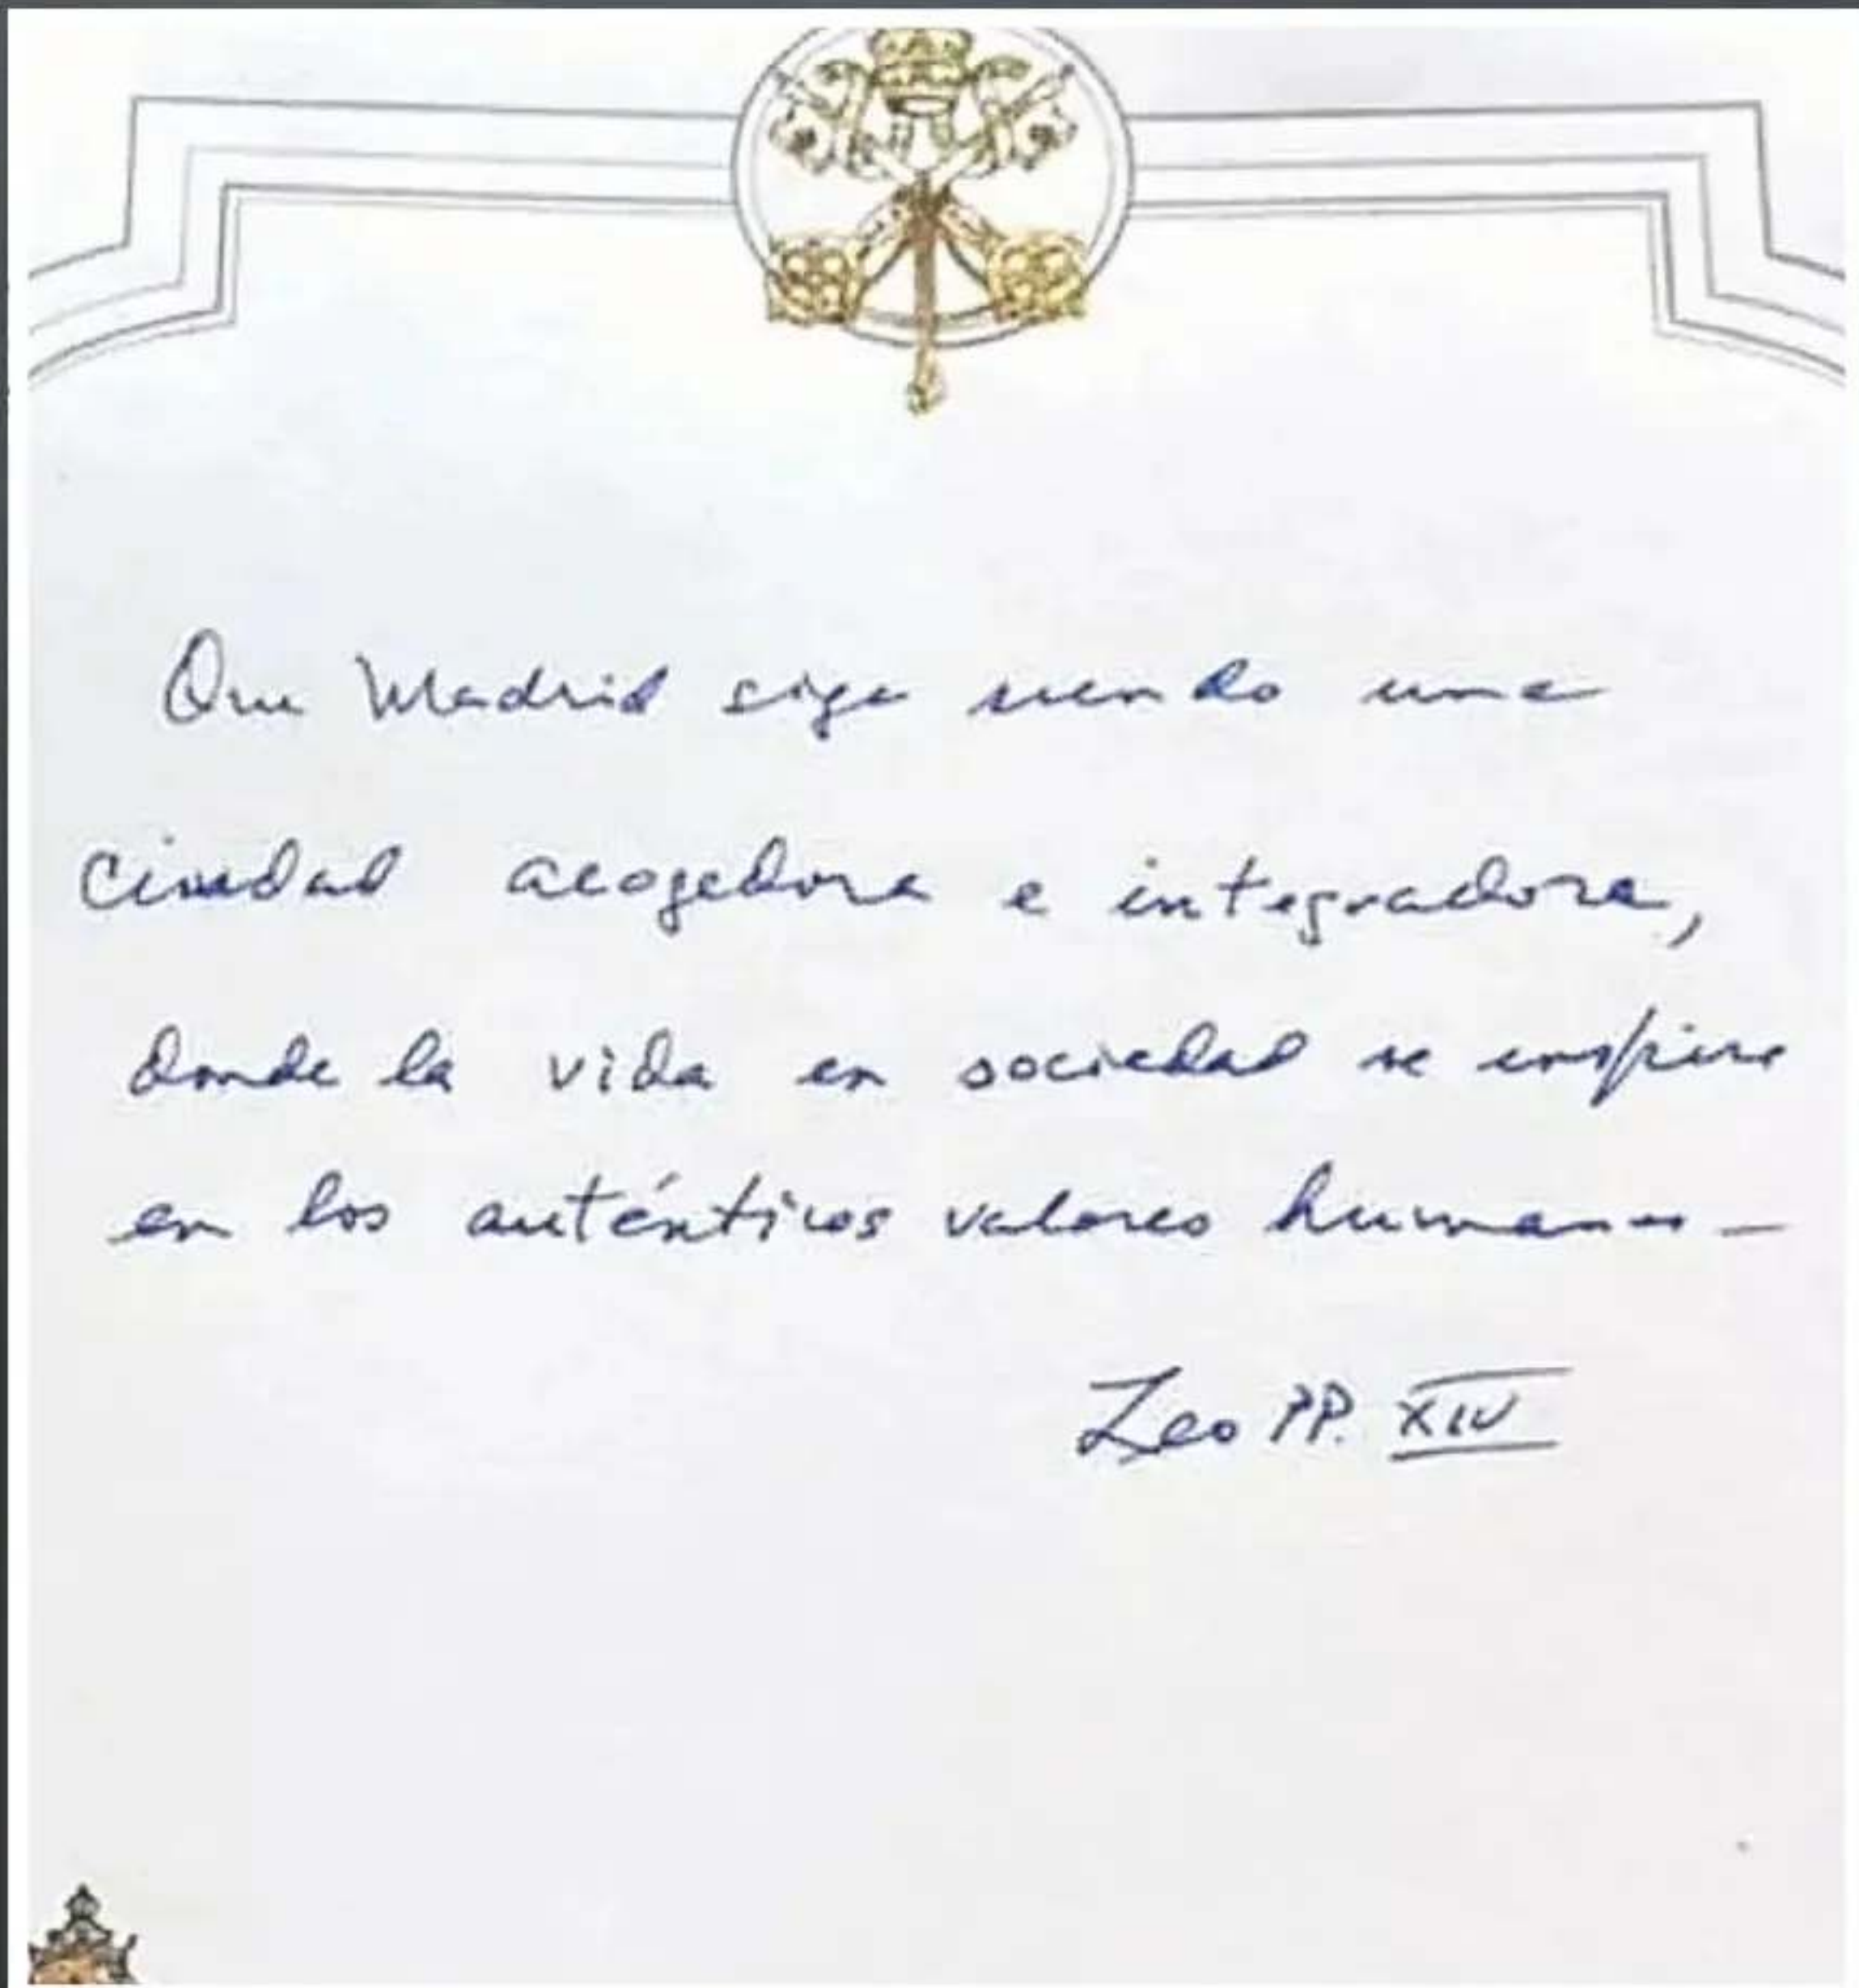 Que Madrid siga siendo una
ciudad acogedora e integradora,
donde la vida en sociedad se inspire
en los auténticos valores humanos -
Leo PP. XIV